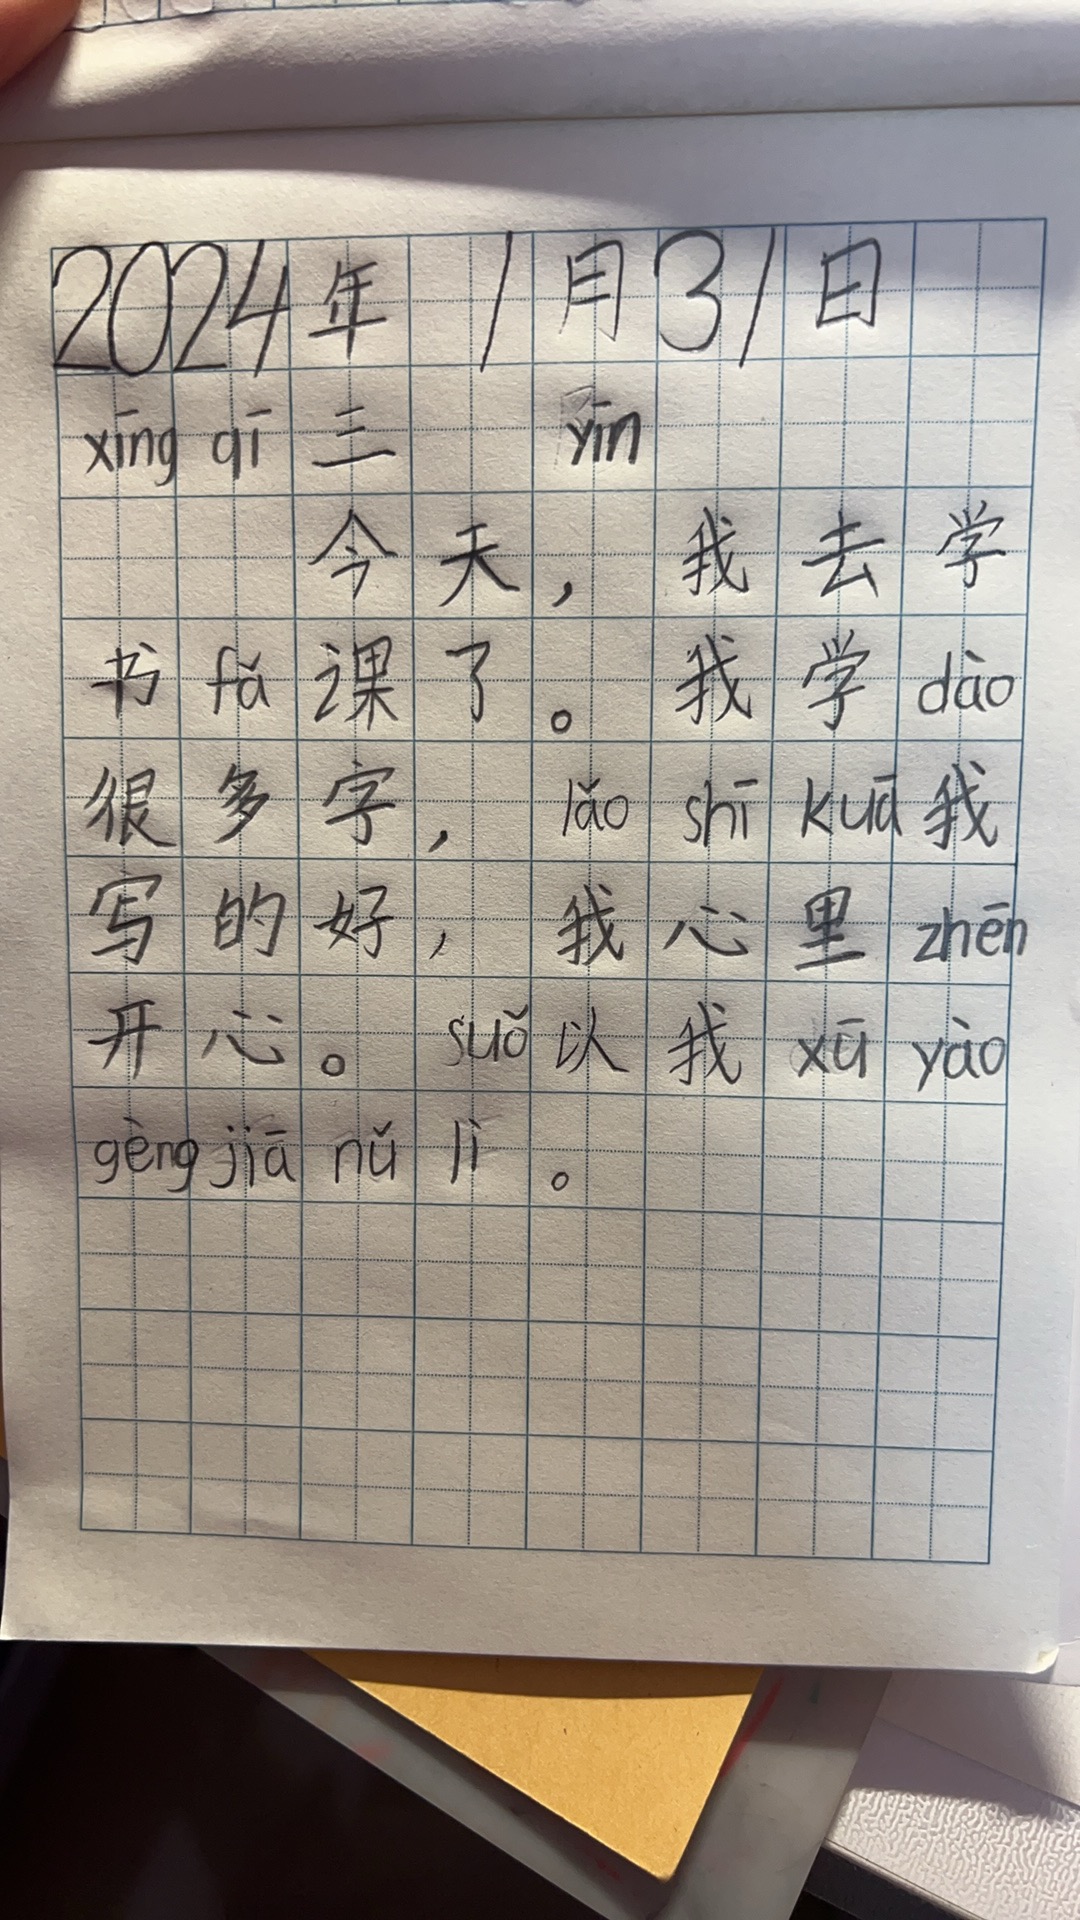 2024年 1月31日
xīng qī 三 yīn
今天，我去学
书 fǎ 课了。我学 dào
很多字，lǎo shī kuā 我
写的好，我心里 zhēn
开心。suǒ 以我 xū yào
gèng jiā nǔ lì 。